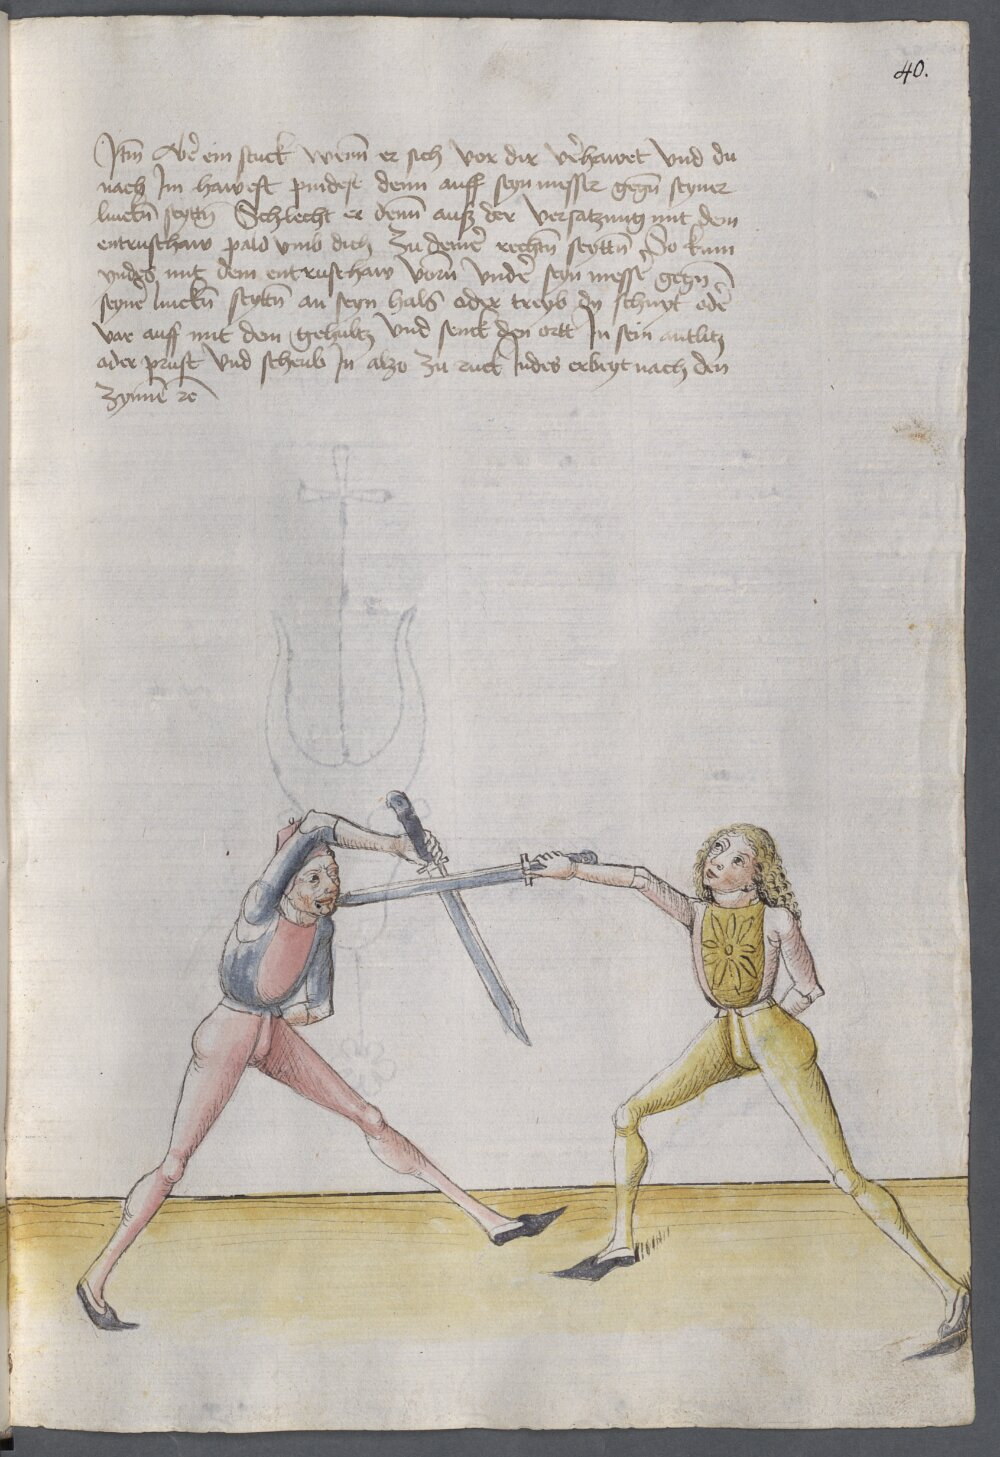 40.
Itm̄ Abē ein stuck wenn̄ er sich vor dir vērhawet vnd du
nach Im hawest pindest denn auff seyn messer gegn̄ seyner
linckn̄ seyttn̄ Schlecht er denn̄ auß der versatzung mit dem
entrusthaw pald vmb dich Zu deinē rechtn̄ seyttn̄ So kum
vndes mit dem entrusthaw vorn̄ vndē seyn messē gegn̄
seynē linckn̄ seyttn̄ an seyn hals oder treyb dy schnyt odē
var auff mit dem gehultz vnd senck den ortt In sein antlitz
oder prust vnd scheub In alzo zu ruck Indes erbeyt nach den
Zymē rc̄